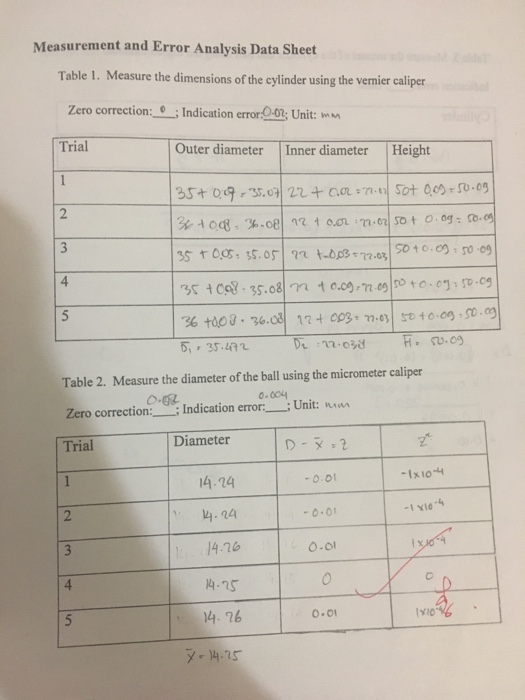 Measurement and Error Analysis Data Sheet
Table 1. Measure the dimensions of the cylinder using the vernier caliper
Zero correction: 0 ; Indication error: 0.02; Unit: mm
Trial Outer diameter Inner diameter Height
1 35 + 0.07 = 35.07 22 + 0.02 = 50 + 0.09 = 50.09
2 36 + 0.08 = 36.08 22 + 0.02 = 22.02 50 + 0.09 = 50.09
3 35 + 0.05 = 35.05 22 + 0.03 = 22.03 50 + 0.09 = 50.09
4 35 + 0.08 = 35.08 22 + 0.09 = 22.09 50 + 0.09 = 50.09
5 36 + 0.08 = 36.08 22 + 0.03 = 22.03 50 + 0.09 = 50.09
D̄₁ = 35.472 D̄₂ = 22.038 H̄ = 50.09
Table 2. Measure the diameter of the ball using the micrometer caliper
Zero correction: ; Indication error: 0.004 ; Unit: mm
Trial Diameter D - x̄ = z z²
1 14.24 -0.01 -1x10⁻⁴
2 14.24 -0.01 -1x10⁻⁴
3 14.26 0.01 1x10⁻⁴
4 14.25 0 0
5 14.26 0.01
x̄ = 14.25